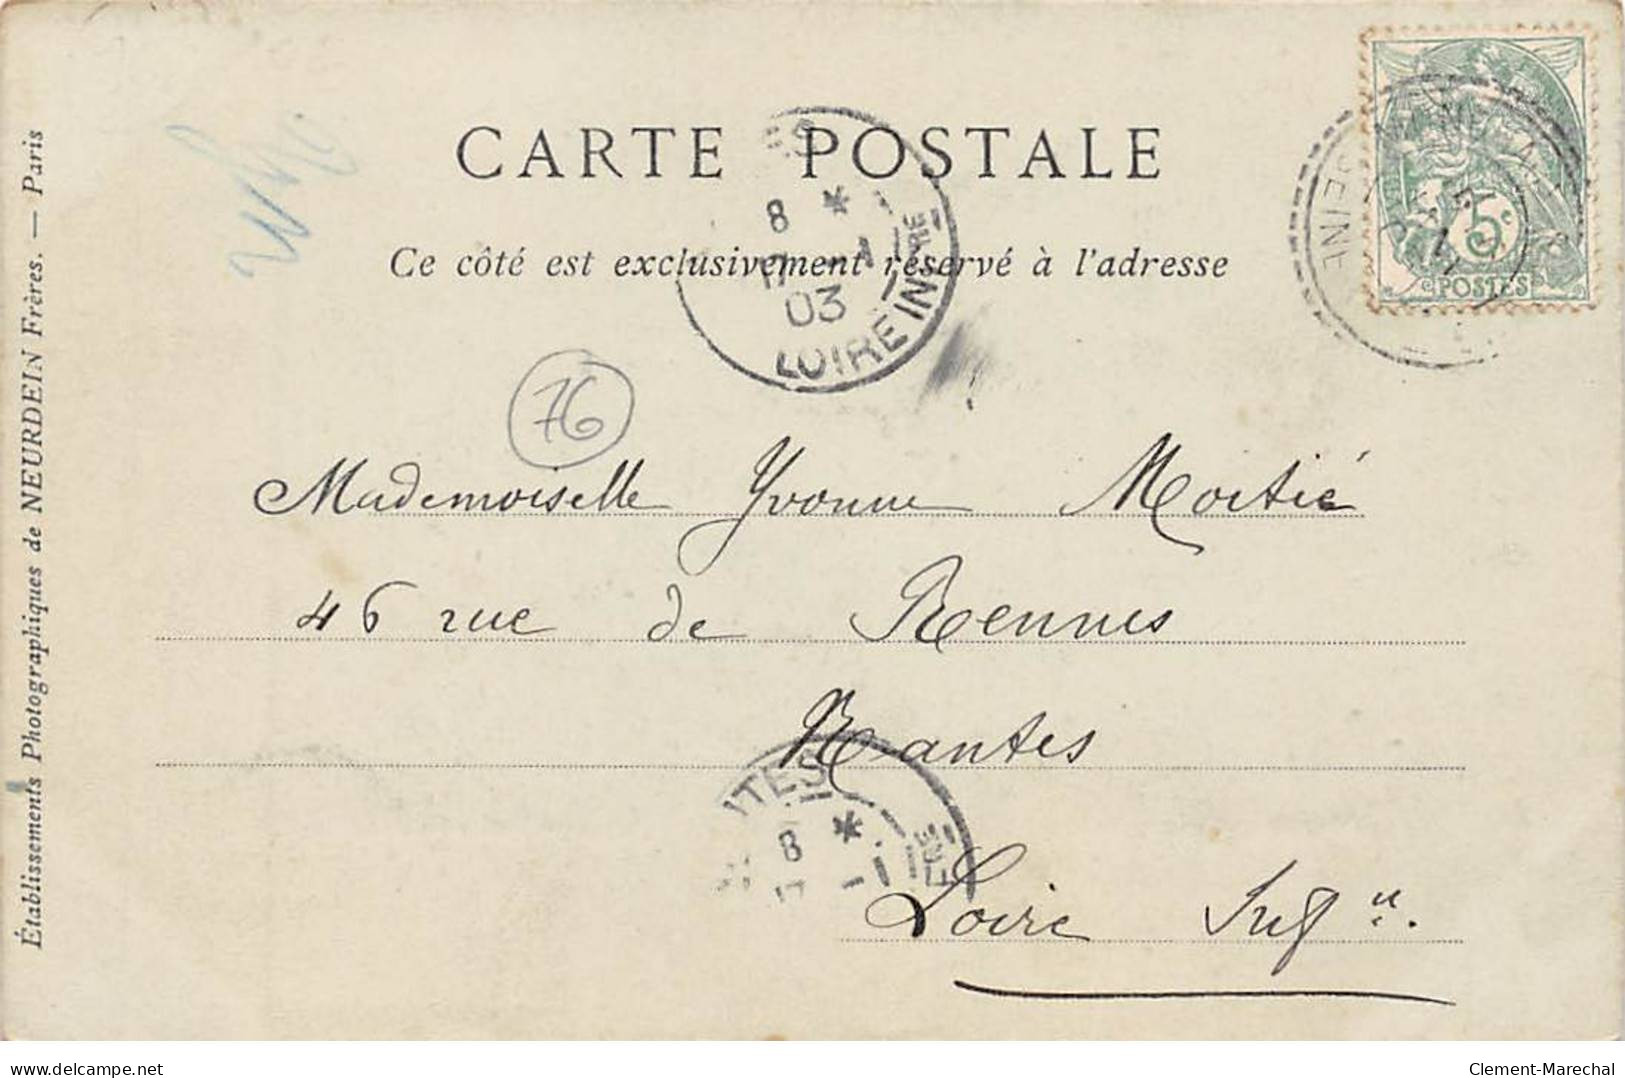 CARTE POSTALE
Ce côté est exclusivement réservé à l'adresse
8 *
17 -1
03
LOIRE INFRE
5c
POSTES
SEINE
76
Mademoiselle Yvonne Moitié
46 rue de Rennes
Nantes
Loire Infre.
8 *
17 -1
Établissements Photographiques de NEURDEIN Frères. — Paris
Clement-Marechal